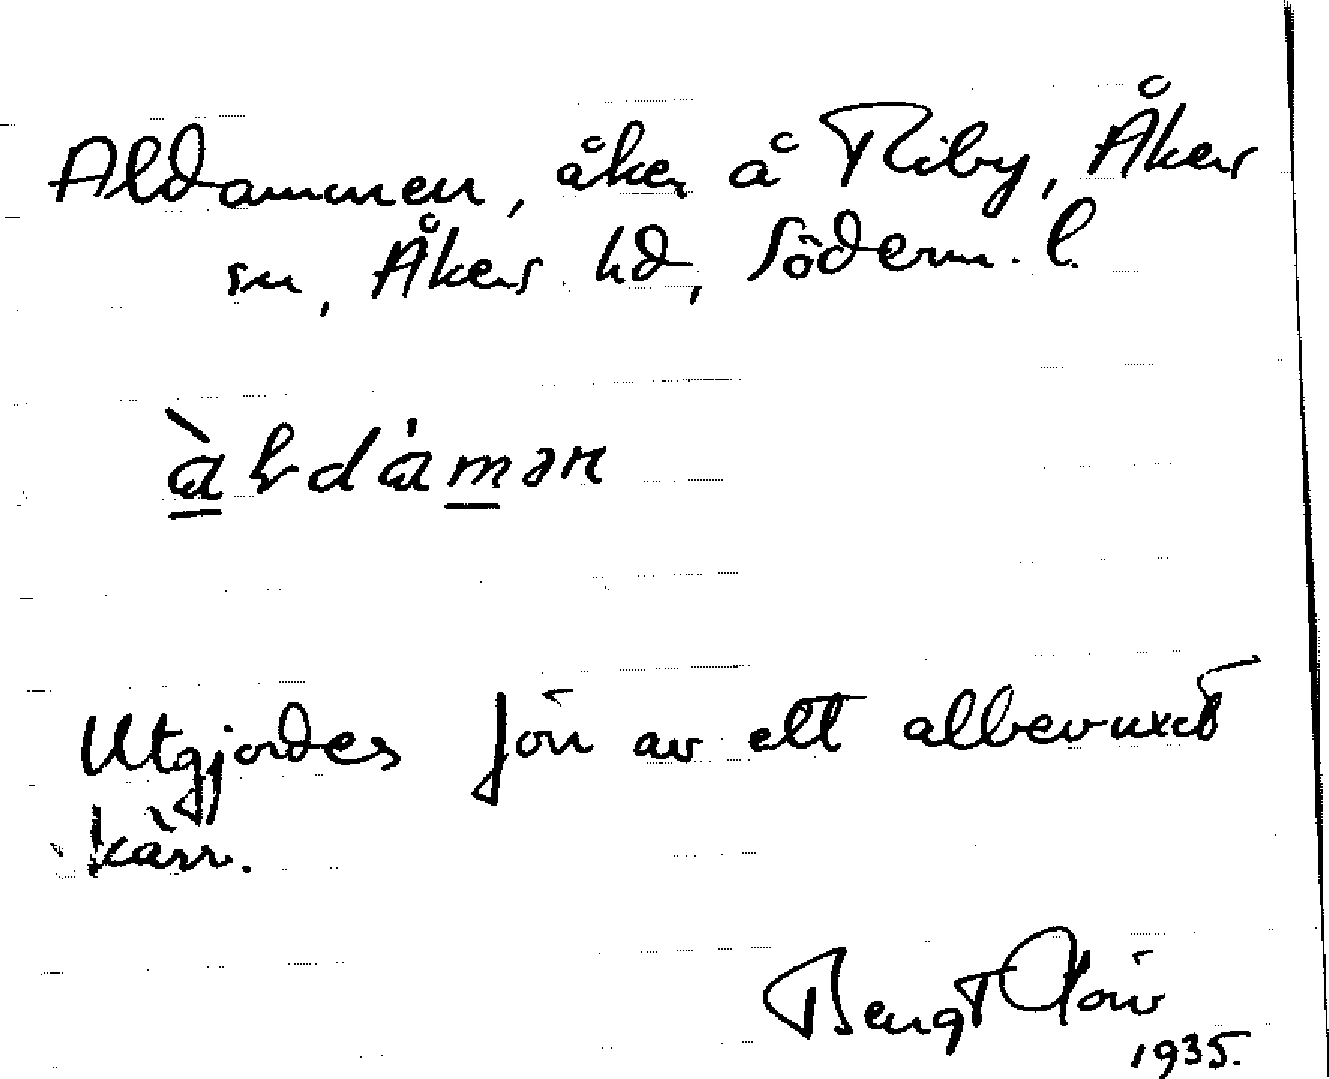 Aldammen, åker å Riby, Åkers
sn, Åkers hd, Söderm. l.
Utgjordes förr av ett albevuxet
kärr.
Bengt
1935.